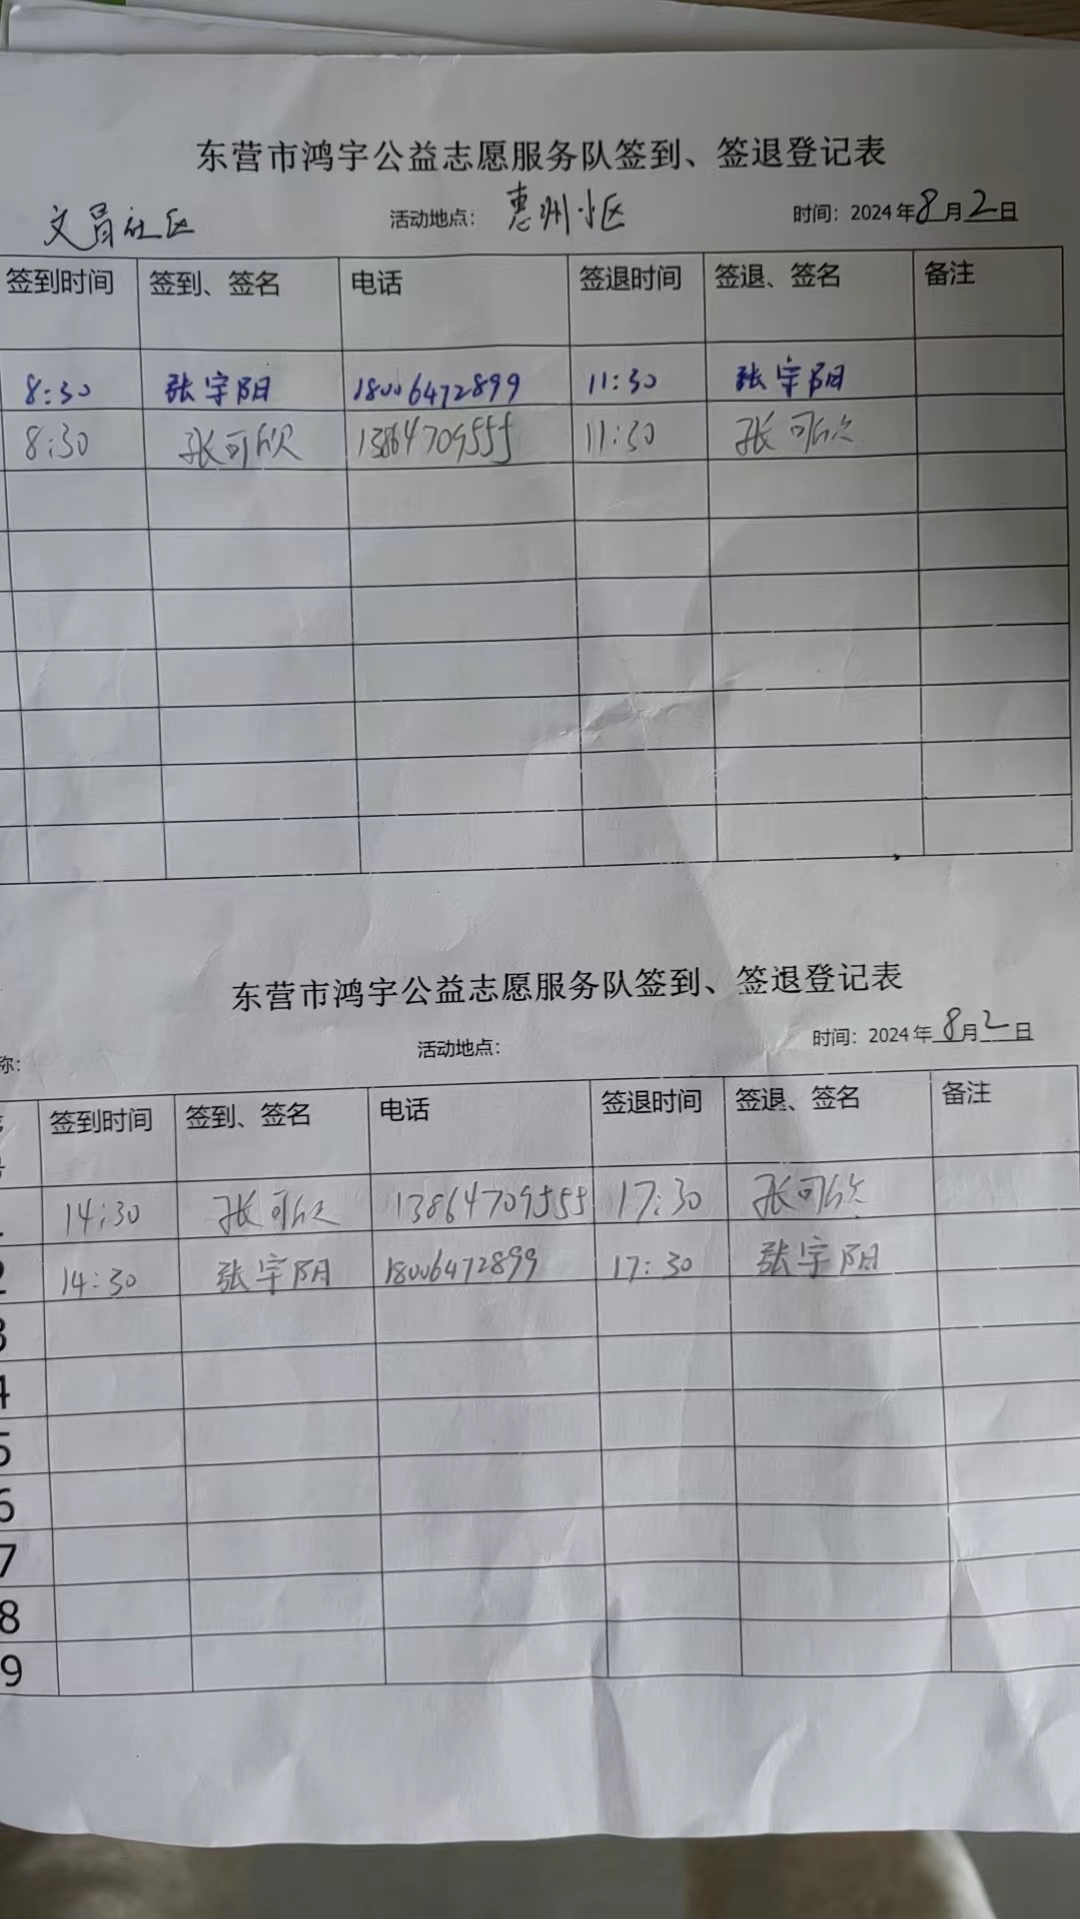 东营市鸿宇公益志愿服务队签到、签退登记表
文昌社区 活动地点： 惠州小区 时间：2024年8月2日
签到时间 签到、签名 电话 签退时间 签退、签名 备注
8:30 张宇阳 18006472899 11:30 张宇阳
8:30 张可欣 13864709555 11:30 张可欣
东营市鸿宇公益志愿服务队签到、签退登记表
称： 活动地点： 时间：2024年8月2日
号 签到时间 签到、签名 电话 签退时间 签退、签名 备注
1 14:30 张可欣 13864709555 17:30 张可欣
2 14:30 张宇阳 18006472899 17:30 张宇阳
3
4
5
6
7
8
9